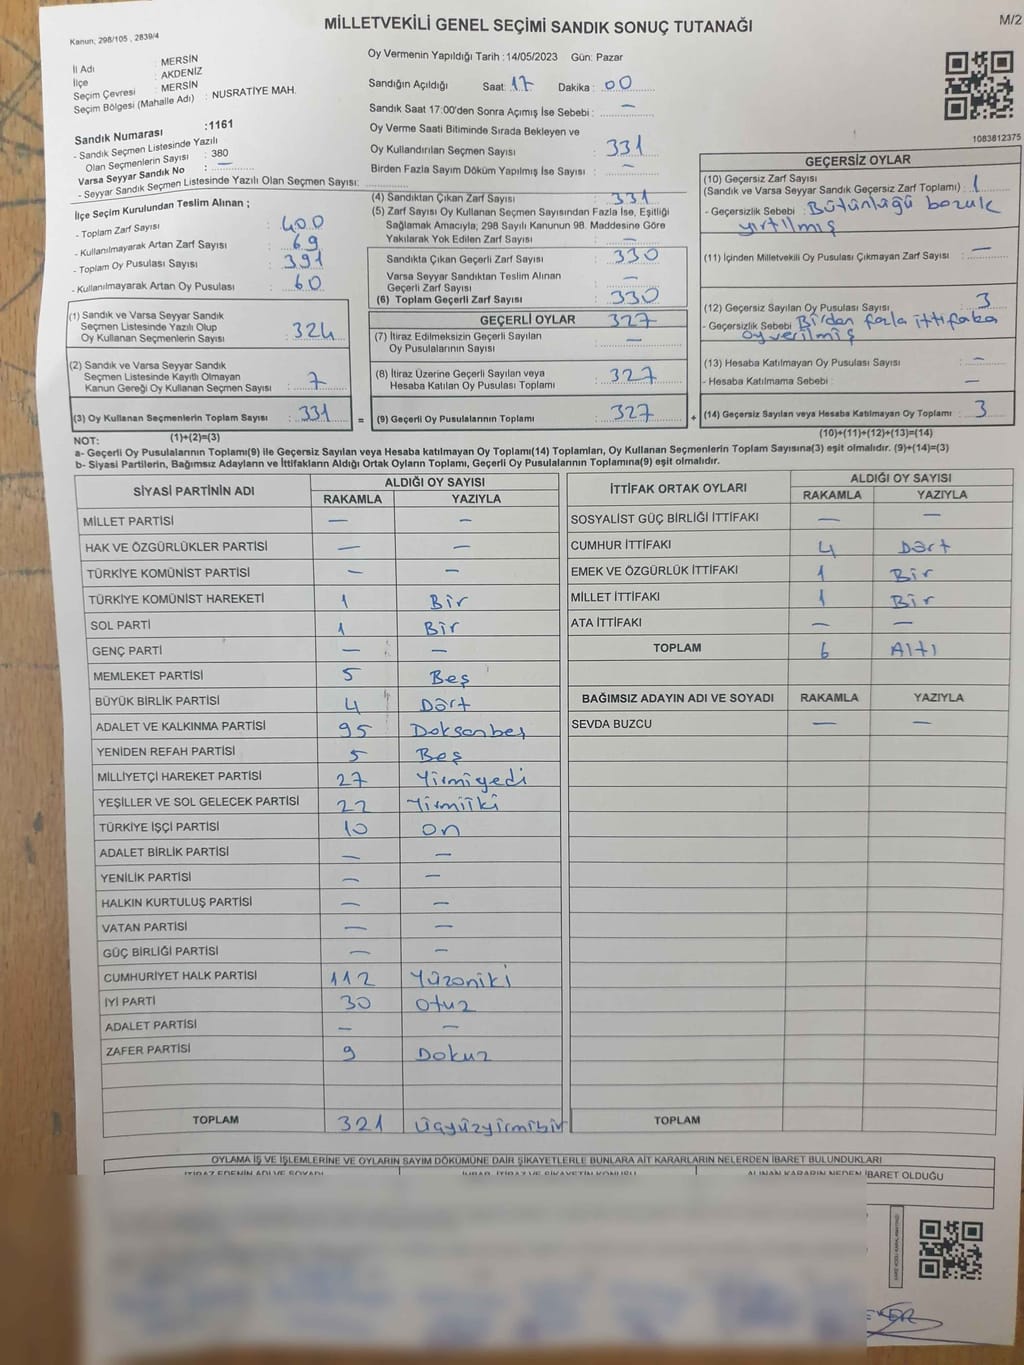 MİLLETVEKİLİ GENEL SEÇİMİ SANDIK SONUÇ TUTANAĞI
M/2
Kanun; 298/105 , 2839/4
İl Adı : MERSİN
İlçe : AKDENİZ
Seçim Çevresi : MERSİN
Seçim Bölgesi (Mahalle Adı) : NUSRATİYE MAH.
Sandık Numarası :1161
- Sandık Seçmen Listesinde Yazılı
Olan Seçmenlerin Sayısı : 380
Varsa Seyyar Sandık No : —
- Seyyar Sandık Seçmen Listesinde Yazılı Olan Seçmen Sayısı:
İlçe Seçim Kurulundan Teslim Alınan ;
- Toplam Zarf Sayısı : 400
- Kullanılmayarak Artan Zarf Sayısı : 69
- Toplam Oy Pusulası Sayısı : 391
- Kullanılmayarak Artan Oy Pusulası : 60
(1) Sandık ve Varsa Seyyar Sandık
Seçmen Listesinde Yazılı Olup
Oy Kullanan Seçmenlerin Sayısı : 324
(2) Sandık ve Varsa Seyyar Sandık
Seçmen Listesinde Kayıtlı Olmayan
Kanun Gereği Oy Kullanan Seçmen Sayısı : 7
(3) Oy Kullanan Seçmenlerin Toplam Sayısı : 331 =
(1)+(2)=(3)
Oy Vermenin Yapıldığı Tarih : 14/05/2023 Gün: Pazar
Sandığın Açıldığı Saat: 17 Dakika : 00
Sandık Saat 17:00'den Sonra Açımış İse Sebebi : —
Oy Verme Saati Bitiminde Sırada Bekleyen ve
Oy Kullandırılan Seçmen Sayısı : 331
Birden Fazla Sayım Döküm Yapılmış İse Sayısı : —
(4) Sandıktan Çıkan Zarf Sayısı : 331
(5) Zarf Sayısı Oy Kullanan Seçmen Sayısından Fazla İse, Eşitliği
Sağlamak Amacıyla; 298 Sayılı Kanunun 98. Maddesine Göre
Yakılarak Yok Edilen Zarf Sayısı : —
Sandıkta Çıkan Geçerli Zarf Sayısı : 330
Varsa Seyyar Sandıktan Teslim Alınan
Geçerli Zarf Sayısı : —
(6) Toplam Geçerli Zarf Sayısı : 330
GEÇERLİ OYLAR 327
(7) İtiraz Edilmeksizin Geçerli Sayılan
Oy Pusulalarının Sayısı : —
(8) İtiraz Üzerine Geçerli Sayılan veya
Hesaba Katılan Oy Pusulası Toplamı : 327
(9) Geçerli Oy Pusulalarının Toplamı : 327 +
1083612375
GEÇERSİZ OYLAR
(10) Geçersiz Zarf Sayısı
(Sandık ve Varsa Seyyar Sandık Geçersiz Zarf Toplamı) : 1
- Geçersizlik Sebebi : Bütünlüğü bozuk
yırtılmış
(11) İçinden Milletvekili Oy Pusulası Çıkmayan Zarf Sayısı : —
(12) Geçersiz Sayılan Oy Pusulası Sayısı : 3
- Geçersizlik Sebebi : Birden fazla ittifaka
oy verilmiş
(13) Hesaba Katılmayan Oy Pusulası Sayısı : —
- Hesaba Katılmama Sebebi : —
(14) Geçersiz Sayılan veya Hesaba Katılmayan Oy Toplamı : 3
(10)+(11)+(12)+(13)=(14)
NOT:
a- Geçerli Oy Pusulalarının Toplamı(9) ile Geçersiz Sayılan veya Hesaba katılmayan Oy Toplamı(14) Toplamları, Oy Kullanan Seçmenlerin Toplam Sayısına(3) eşit olmalıdır. (9)+(14)=(3)
b- Siyasi Partilerin, Bağımsız Adayların ve İttifakların Aldığı Ortak Oyların Toplamı, Geçerli Oy Pusulalarının Toplamına(9) eşit olmalıdır.
SİYASİ PARTİNİN ADI ALDIĞI OY SAYISI
RAKAMLA YAZIYLA
MİLLET PARTİSİ — —
HAK VE ÖZGÜRLÜKLER PARTİSİ — —
TÜRKİYE KOMÜNİST PARTİSİ — —
TÜRKİYE KOMÜNİST HAREKETİ 1 Bir
SOL PARTİ 1 Bir
GENÇ PARTİ — —
MEMLEKET PARTİSİ 5 Beş
BÜYÜK BİRLİK PARTİSİ 4 Dört
ADALET VE KALKINMA PARTİSİ 95 Doksanbeş
YENİDEN REFAH PARTİSİ 5 Beş
MİLLİYETÇİ HAREKET PARTİSİ 27 Yirmiyedi
YEŞİLLER VE SOL GELECEK PARTİSİ 22 Yirmiiki
TÜRKİYE İŞÇİ PARTİSİ 10 On
ADALET BİRLİK PARTİSİ — —
YENİLİK PARTİSİ — —
HALKIN KURTULUŞ PARTİSİ — —
VATAN PARTİSİ — —
GÜÇ BİRLİĞİ PARTİSİ — —
CUMHURİYET HALK PARTİSİ 112 Yüzoniki
İYİ PARTİ 30 Otuz
ADALET PARTİSİ — —
ZAFER PARTİSİ 9 Dokuz
TOPLAM 321 Üçyüzyirmibir
İTTİFAK ORTAK OYLARI ALDIĞI OY SAYISI
RAKAMLA YAZIYLA
SOSYALİST GÜÇ BİRLİĞİ İTTİFAKI — —
CUMHUR İTTİFAKI 4 Dört
EMEK VE ÖZGÜRLÜK İTTİFAKI 1 Bir
MİLLET İTTİFAKI 1 Bir
ATA İTTİFAKI — —
TOPLAM 6 Altı
BAĞIMSIZ ADAYIN ADI VE SOYADI RAKAMLA YAZIYLA
SEVDA BUZCU — —
TOPLAM
OYLAMA İŞ VE İŞLEMLERİNE VE OYLARIN SAYIM DÖKÜMÜNE DAİR ŞİKAYETLERLE BUNLARA AİT KARARLARIN NELERDEN İBARET BULUNDUKLARI
İTİRAZ EDENİN ADI VE SOYADI
ALINAN KARARIN NEDEN İBARET OLDUĞU